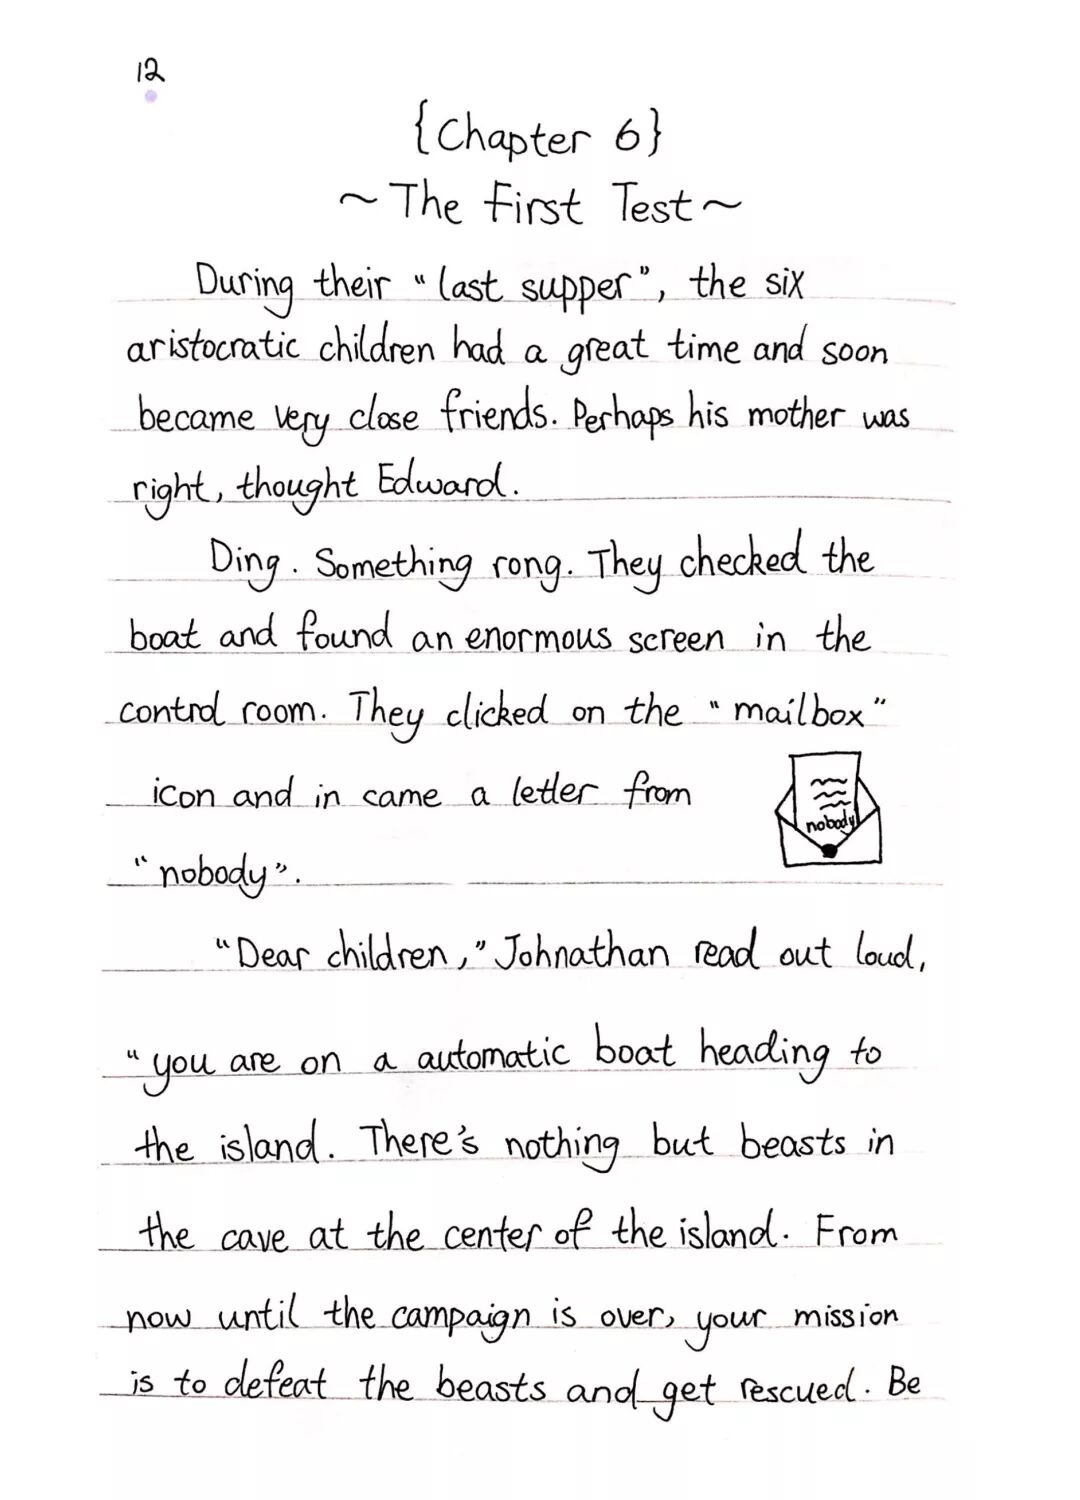 12
{Chapter 6}
~The First Test~
During their "last supper", the six
aristocratic children had a great time and soon
became very close friends. Perhaps his mother was
right, thought Edward.
Ding. Something rong. They checked the
boat and found an enormous screen in the
control room. They clicked on the "mailbox"
icon and in came a letter from
nobody
"nobody".
"Dear children," Johnathan read out loud,
"you are on a automatic boat heading to
the island. There's nothing but beasts in
the cave at the center of the island. From
now until the campaign is over, your mission
is to defeat the beasts and get rescued. Be